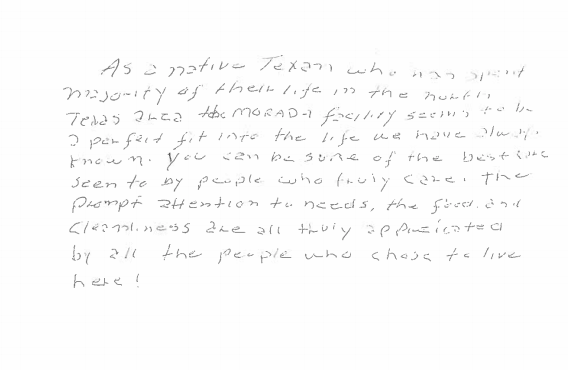 As a native Texan who has spent
majority of their life in the north
Texas area the MORADA facility seems to be
a perfect fit into the life we have always
known. You can be sure of the best
seen to by people who truly care. The
prompt attention to needs, the food and
cleanliness are all truly appreciated
by all the people who chose to live
here!